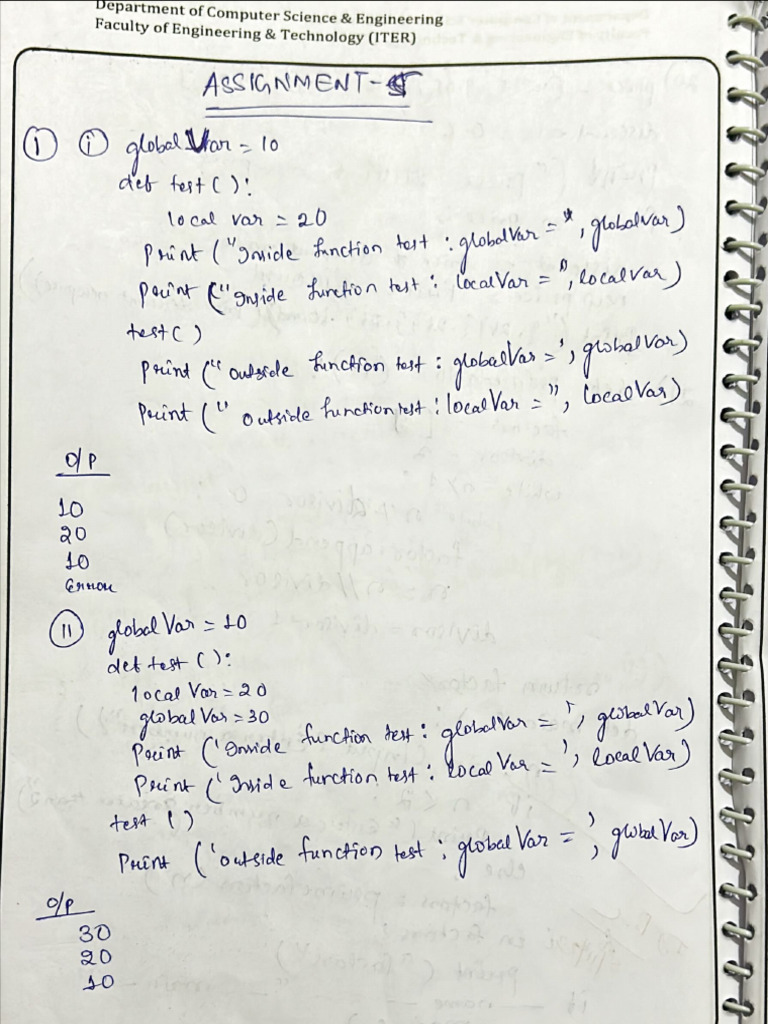 Department of Computer Science & Engineering
Faculty of Engineering & Technology (ITER)
ASSIGNMENT-5
① ⓘ globalVar = 10
def test():
local var = 20
Print ("Inside function test : globalVar = ", globalvar)
Print ("Inside function test : localVar = ", localvar)
test()
Print ("outside function test : globalVar = ', globalVar)
Print (" outside function test : localVar = ", localVar)
O/P
10
20
10
Error
(II) globalVar = 10
def test ():
localVar = 20
globalVar = 30
Print ('Inside function test : globalVar = ', globalVar)
Print ('Inside function test : localVar = ', localVar)
test ()
Print ('outside function test ; globalVar = ', globalVar)
O/P
30
20
10